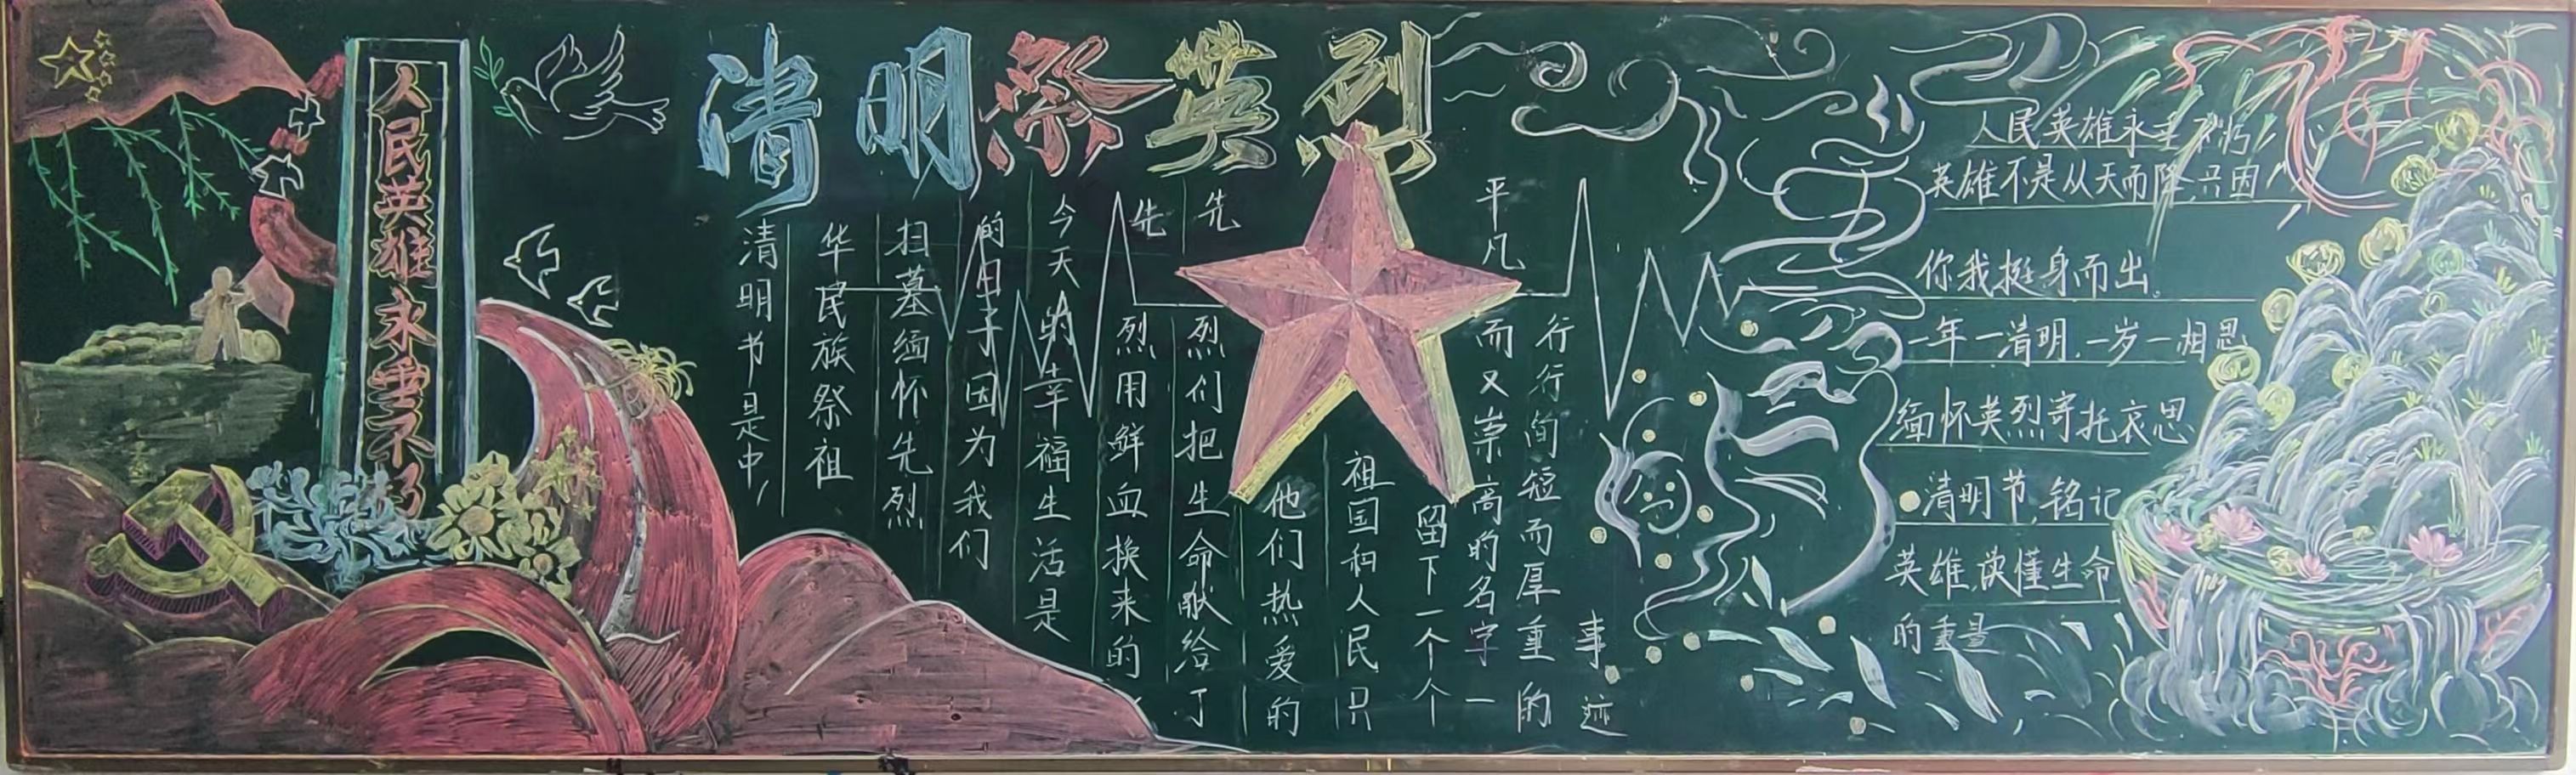 人民英雄永垂不朽
清明祭英烈
清明节是中
华民族祭祖
扫墓缅怀先烈
的日子因为我们
今天的幸福生活是
先烈用鲜血换来的
先烈们把生命献给了
他们热爱的
祖国和人民只
留下一个个
平凡而又崇高的名字一
行行简短而厚重的
事迹
人民英雄永垂不朽
英雄不是从天而降,只因
你我挺身而出。
一年一清明,一岁一相思
缅怀英烈寄托哀思
清明节,铭记
英雄,读懂生命
的重量